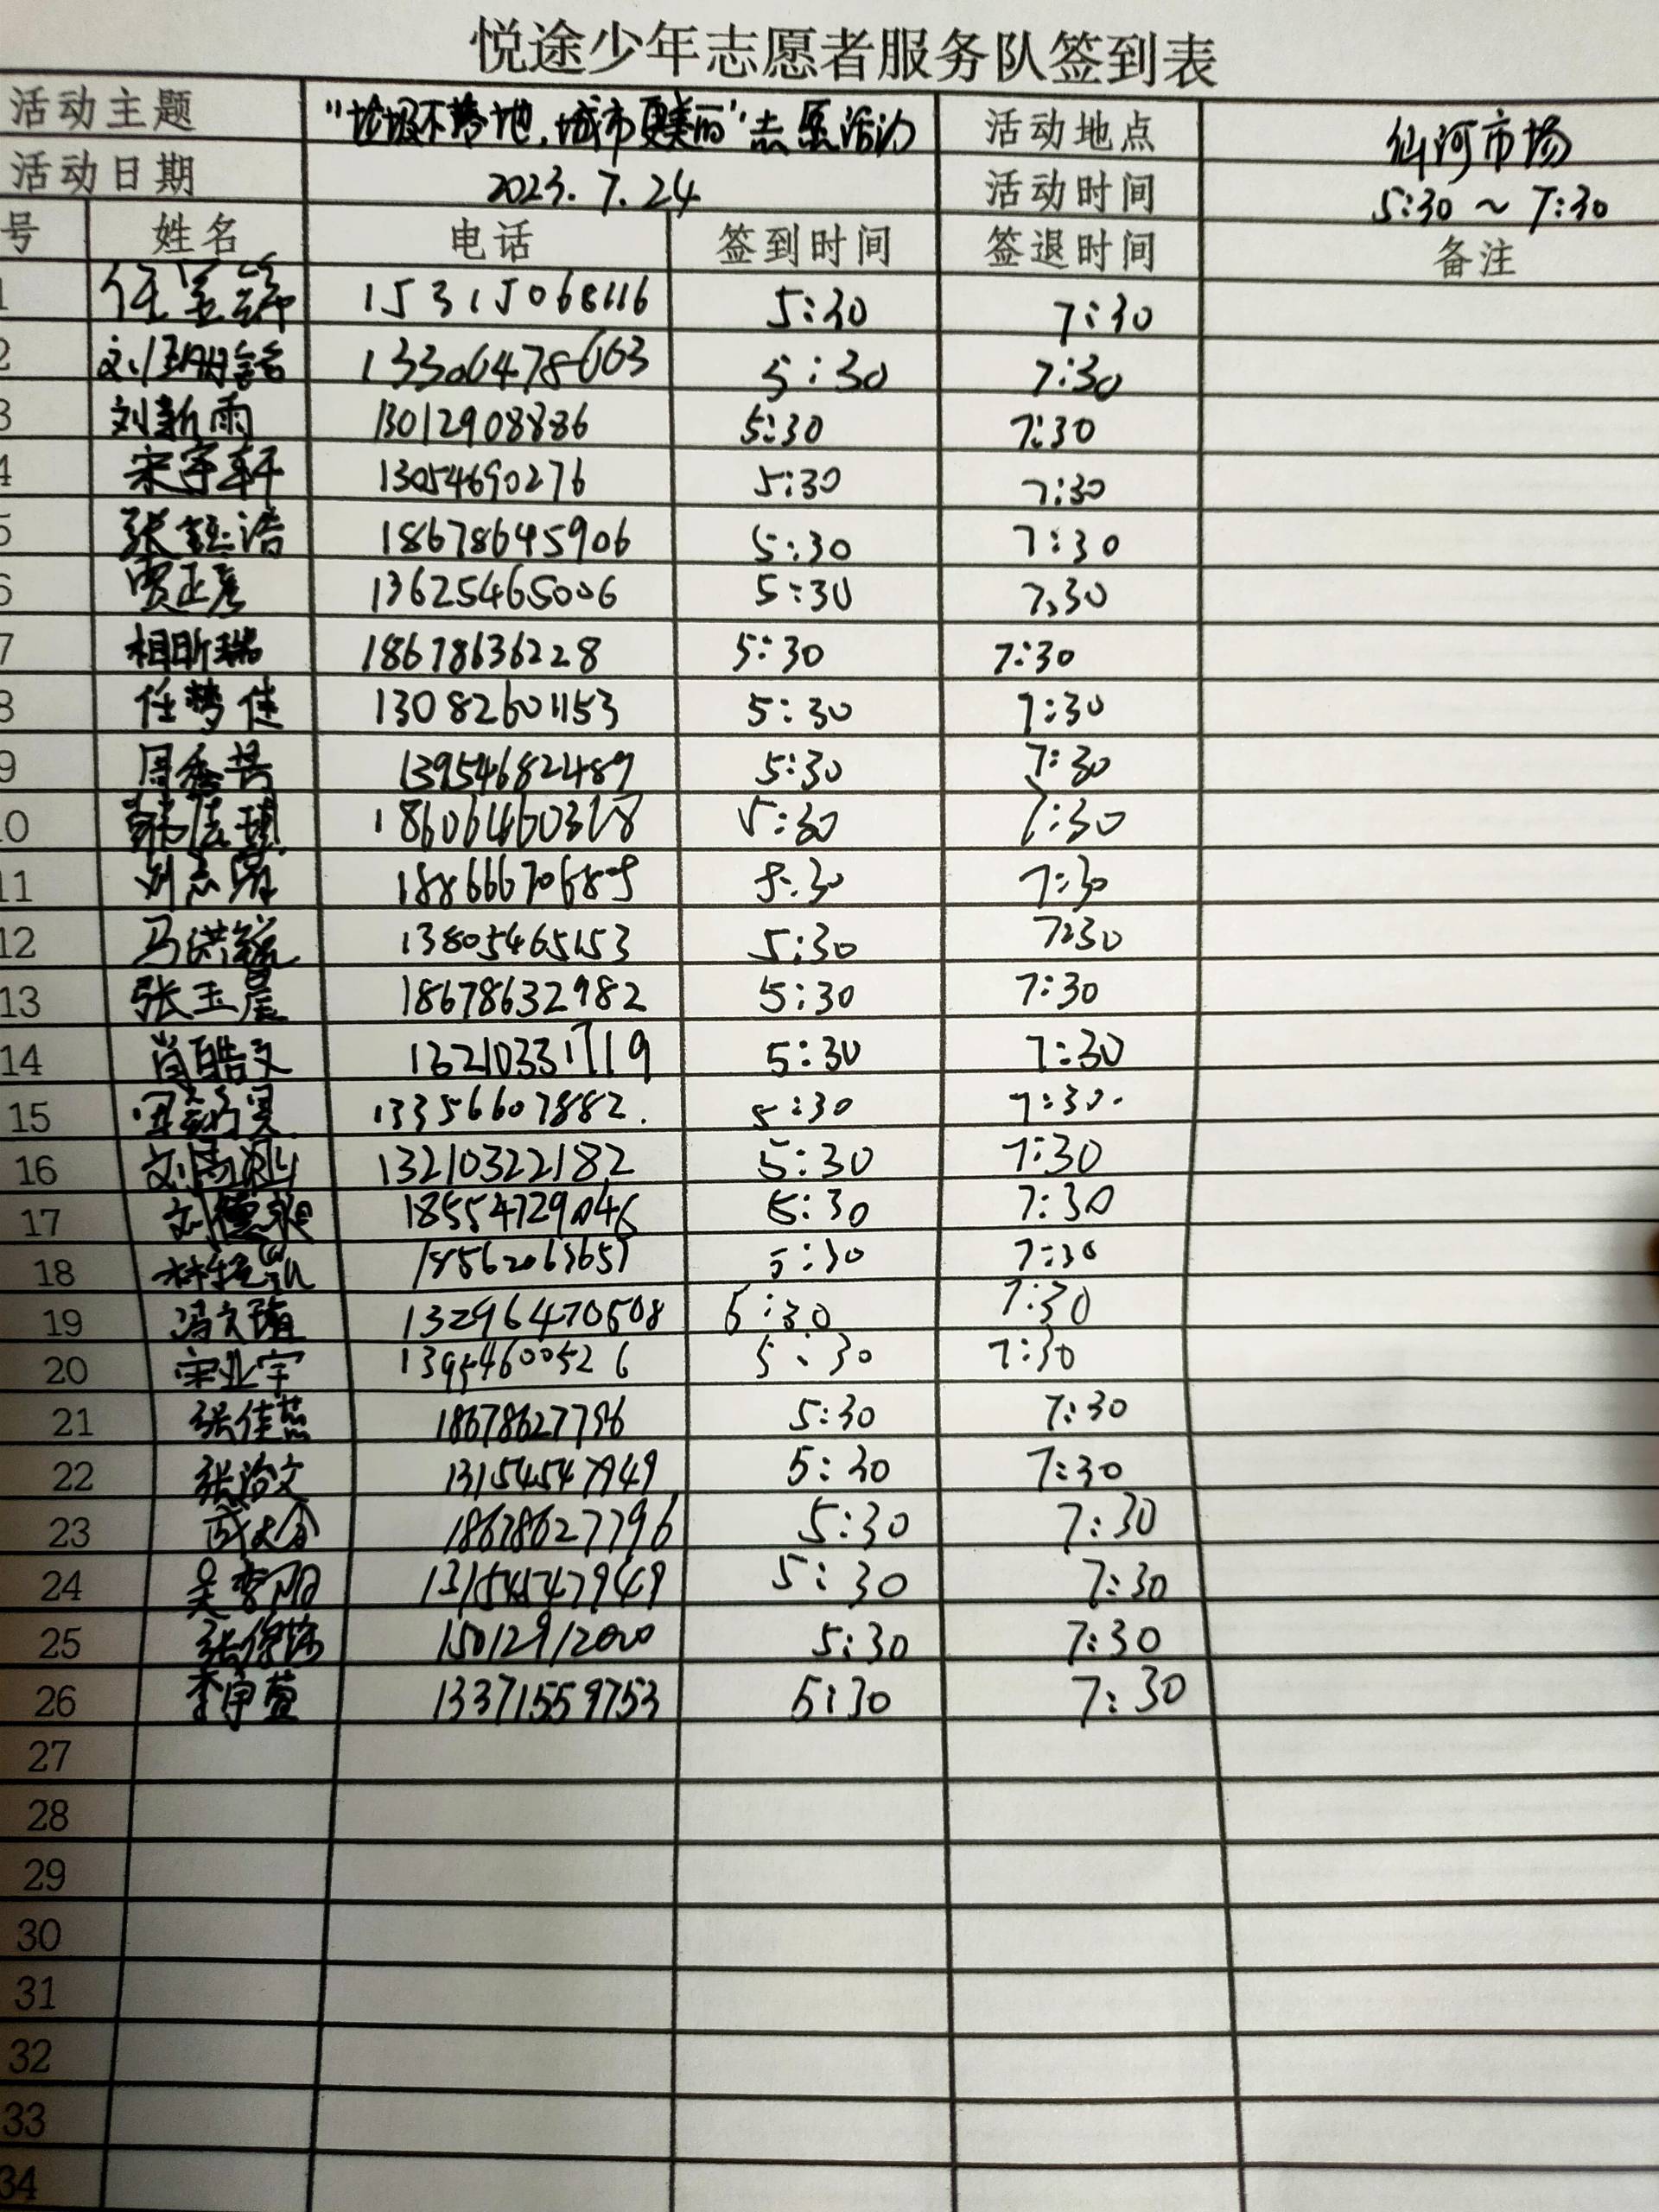 悦途少年志愿者服务队签到表
活动主题 "垃圾不落地,城市更美丽"志愿活动 活动地点 仙河市场
活动日期 2023.7.24 活动时间 5:30～7:30
号 姓名 电话 签到时间 签退时间 备注
1 15315068116 5:30 7:30
2 13306478663 5:30 7:30
3 刘新雨 13012908886 5:30 7:30
4 宋宇轩 13054690276 5:30 7:30
5 张钰浩 18678645906 5:30 7:30
6 贾正彦 13625465006 5:30 7:30
7 相昕瑞 18678636228 5:30 7:30
8 任梦佳 13082601153 5:30 7:30
9 13954682489 5:30 7:30
10 5:30 7:30
11 18866670689 5:30 7:30
12 马洪毓 13805465153 5:30 7:30
13 张玉晨 18678632982 5:30 7:30
14 肖皓文 13210331719 5:30 7:30
15 13356607882. 5:30 7:30.
16 13210322182 5:30 7:30
17 18554729046 5:30 7:30
18 18562063657 5:30 7:30
19 冯文瑄 13296470508 5:30 7:30
20 宋业宇 13954600526 5:30 7:30
21 张佳蕊 18678627796 5:30 7:30
22 张洽文 13154547949 5:30 7:30
23 18678627796 5:30 7:30
24 5:30 7:30
25 15012912000 5:30 7:30
26 李宇萱 13371559753 5:30 7:30
27
28
29
30
31
32
33
34